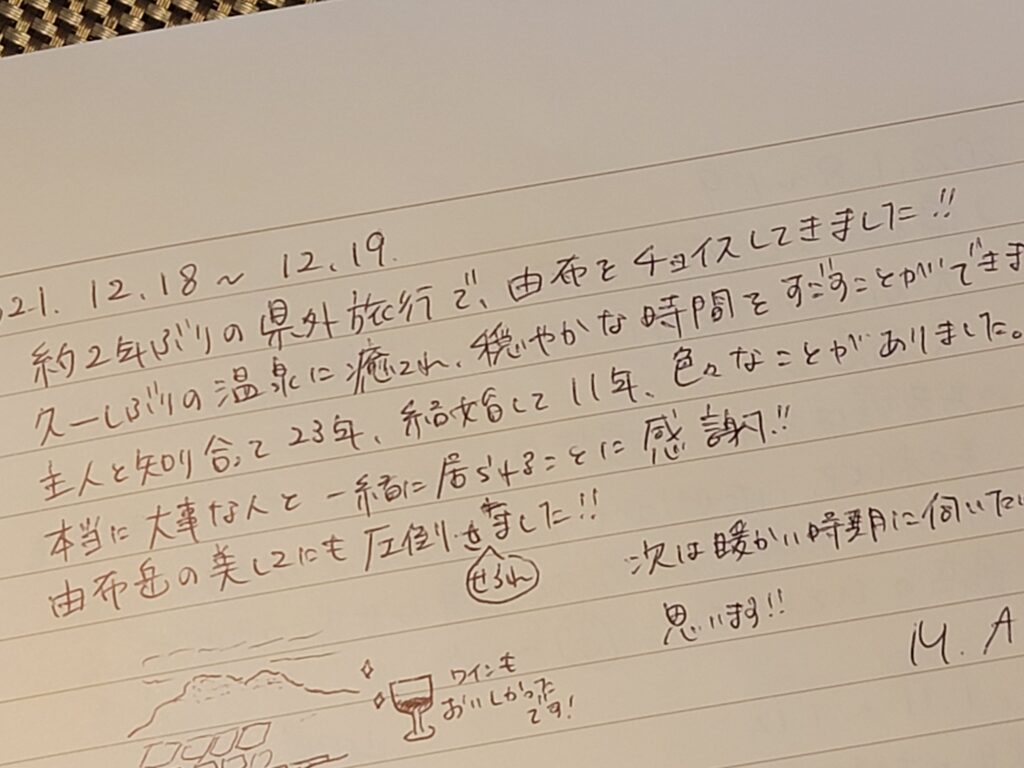 021. 12.18 ~ 12.19.
約2年ぶりの県外旅行で、由布をチョイスしてきました!!
久ーしぶりの温泉に癒され、穏やかな時間をすごすことができま
主人と知り合って23年、結婚して11年、色々なことがありました。
本当に大事な人と一緒に居られることに感謝!!
由布岳の美しさにも圧倒せました!!
せられ
次は暖かい時期に伺いたい
思います!!
M. A
ワインも
おいしかった
です!